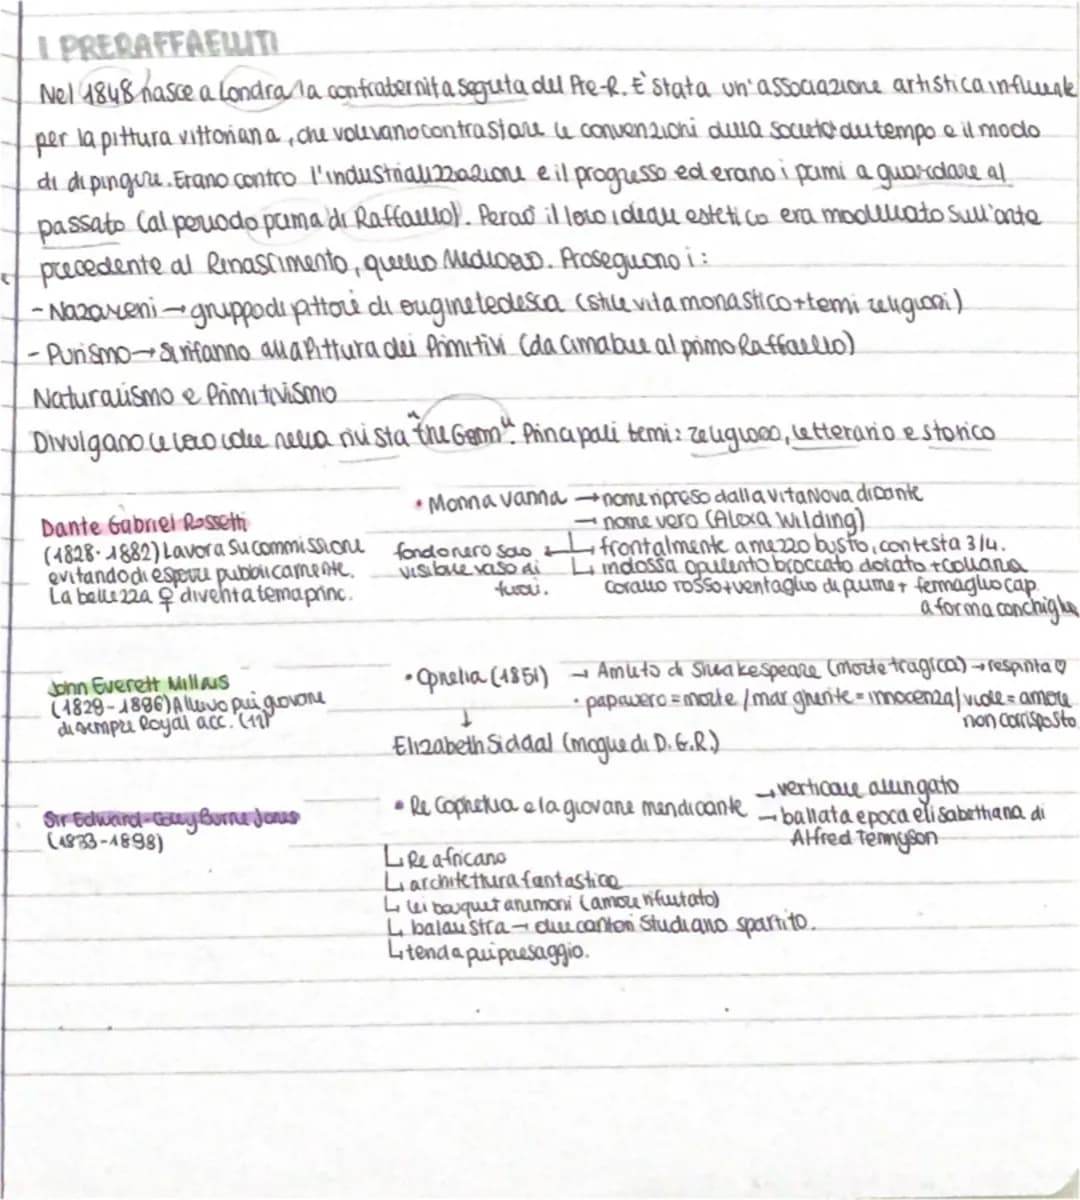 I PRERAFFAELLITI
Nel 1848 nasce a Londra la confraternita segreta dei Pre-R. E' stata un'associazione artistica influente
per la pittura vittoriana, che volevano contrastare le convenzioni della società del tempo e il modo
di dipingere. Erano contro l'industrializzazione e il progresso ed erano i primi a guardare al
passato (al periodo prima di Raffaello). Perciò il loro ideale estetico era modellato sull'arte
precedente al Rinascimento, quello Medioevo. Proseguono i:
- Nazareni → gruppo di pittori di origine tedesca (stile vita monastico + temi religiosi)
- Purismo → Si rifanno alla Pittura dei Primitivi (da Cimabue al primo Raffaello)
Naturalismo e Primitivismo
Divulgano le loro idee nella rivista "The Germ". Principali temi: religioso, letterario e storico
• Monna vanna → nome ripreso dalla vita Nova di Dante
Dante Gabriel Rossetti → nome vero (Alexa Wilding)
(1828-1882) Lavora su commissione fondo nero solo ↳ frontalmente a mezzo busto, con testa 3/4.
evitando di esporre pubblicamente. visibile vaso di ↳ indossa opulento broccato dorato + collana
La bellezza ♀ diventa tema princ. fiori. corallo rosso + ventaglio di piume + fermaglio cap.
a forma conchiglia
John Everett Millais • Ophelia (1851) → Amleto di Shakespeare (morte tragica) → respinta ♡
(1829-1896) Allievo più giovane • papavero = morte / margherite = innocenza / viole = amore
di sempre Royal acc. (11) ↓ non corrisposto
Elizabeth Siddal (moglie di D.G.R.)
→ verticale allungato
Sir Edward Coley Burne Jones • Re Cophetua e la giovane mendicante → ballata epoca elisabethana di
(1833-1898) Alfred Tennyson
↳ Re africano
↳ architettura fantastica
↳ lei bouquet anemoni (amore rifiutato)
↳ balaustra → due cantori studiano spartito.
↳ tenda più paesaggio.